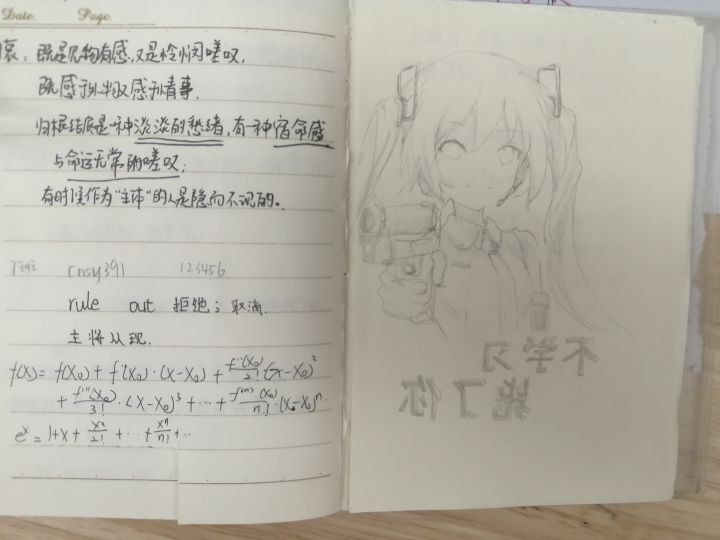 Date. Page.
哀：既是见物有感，又是怜悯嗟叹，
既感于外物又感于情事.
归根结底是一种淡淡的愁绪，有一种宿命感
与命运无常的嗟叹；
有时候作为“主体”的人是隐而不现的.
cnsy391 123456
rule out 拒绝；取消.
主将从现.
f(x) = f(x₀) + f'(x₀)·(x-x₀) + f''(x₀)/2! (x-x₀)²
+ f'''(x₀)/3! ·(x-x₀)³ + ··· + f⁽ⁿ⁾(x₀)/n! ·(x-x₀)ⁿ.
eˣ = 1+x+ x²/2! + ··· + xⁿ/n! + ···
不学习
毙了你